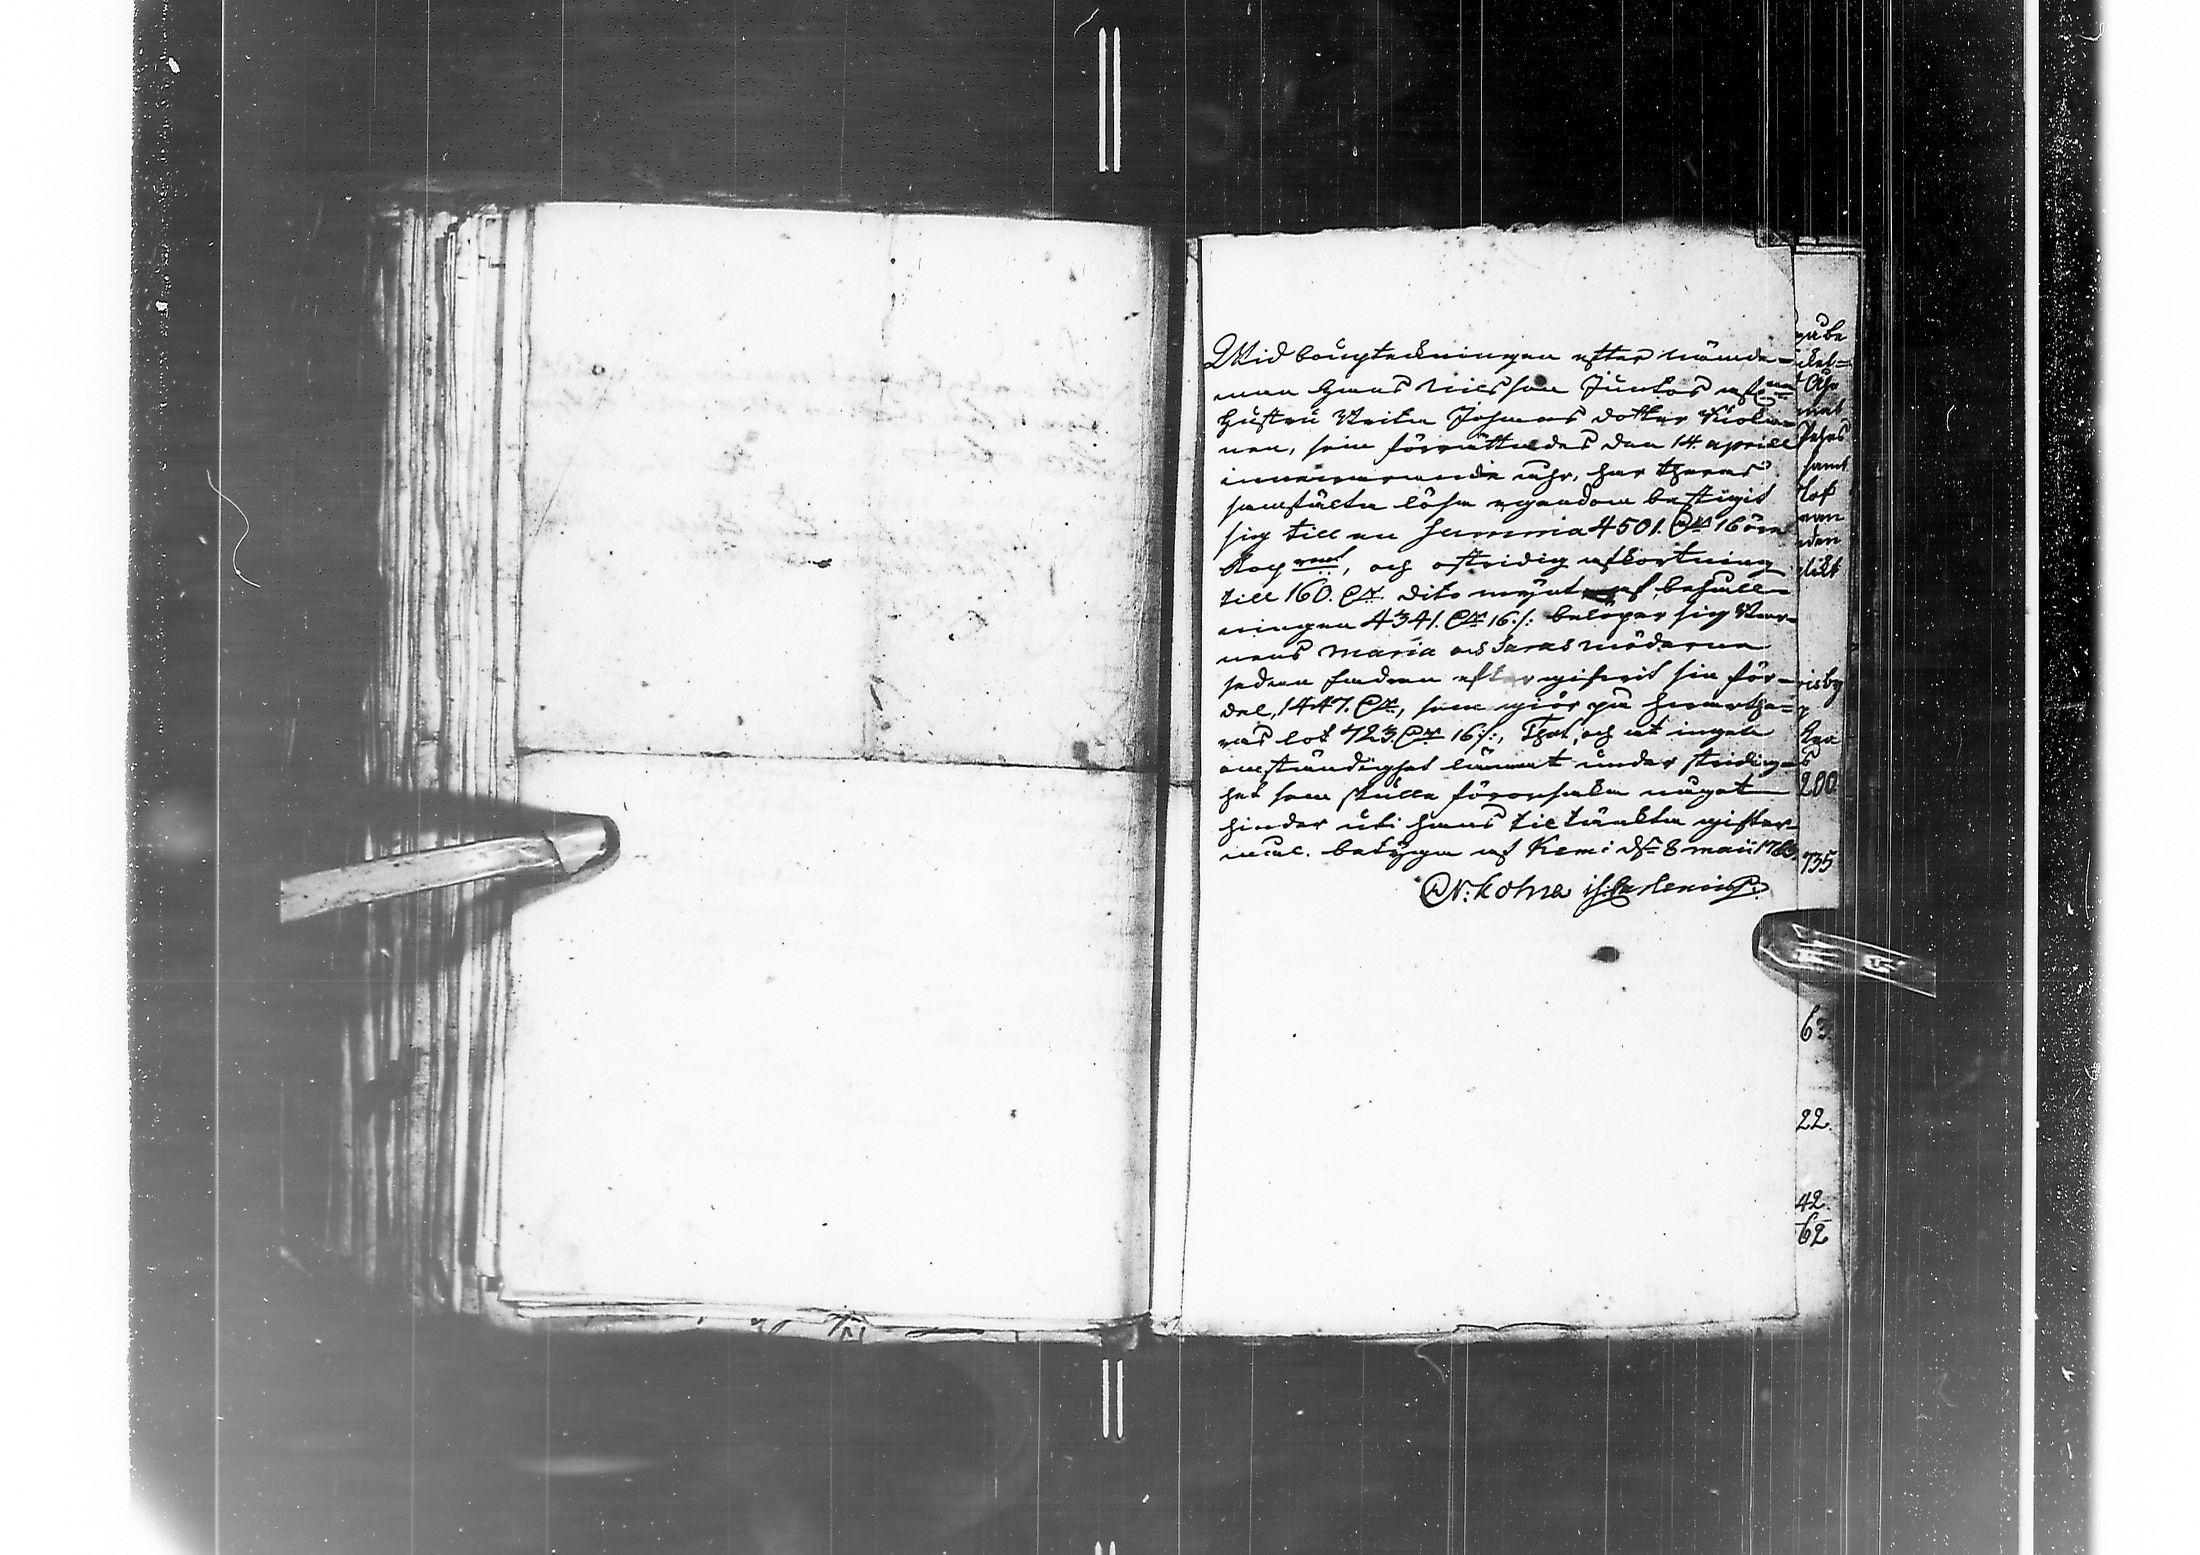 Wid bouptekningen efter nämde-
man Hans Nilsson Junkos afl:na
hustru Brita Johans dotter Kiöln-
nen, som förrättades den 14. aprill
innewarande åhr, har theras
samfälta lösa egendom bestigit
sig till en Summa 4501. Dr 16 öre
Kop mt, och ostridig afkortning
till 160. Dr. dito mynt, af behåll-
ningen 4341. Dr 16:/: belöper sig Bar-
nens Maria och Saras möderne
sedan fadren eftergifwit sin för-
del, 1447. Dr, som giör på hwarthe-
ras lot 723 Dr 16:/:, That, och at ingen
omständighet lämnat under stridig-
het som skulle förorsaka något
hinder uti hans tiltänkta gifter-
mål. betyga af Kemi d: 8 maii 1763.
200
735
63
22.
42.
62